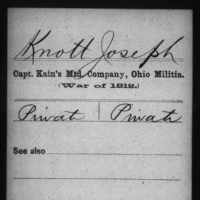 Knott Joseph
Capt. Kain's Mtd. Company, Ohio Militia.
(War of 1812.)
Privat | Privat
See also